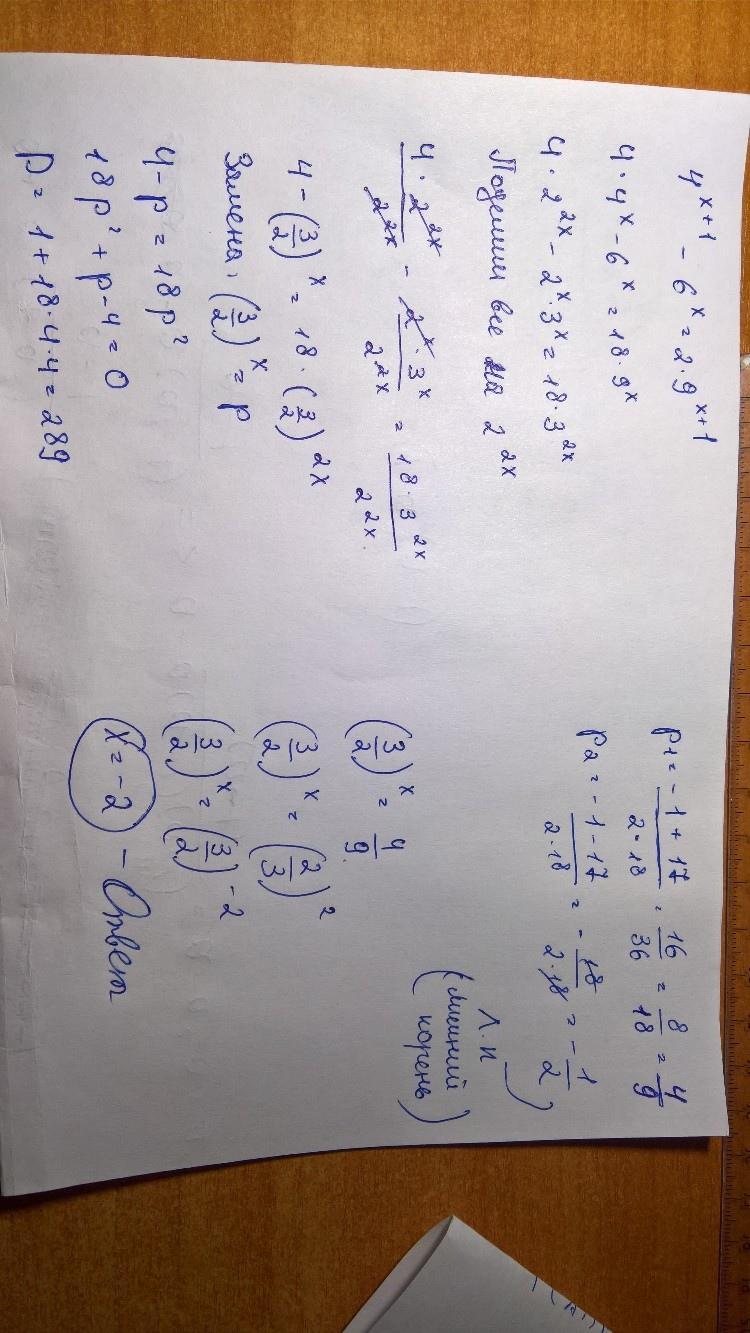 4^(x+1) - 6^x = 2·9^(x+1)
4·4^x - 6^x = 18·9^x
4·2^(2x) - 2^x·3^x = 18·3^(2x)
Поделим все на 2^(2x)
(4·2^(2x))/(2^(2x)) - (2^x·3^x)/(2^(2x)) = (18·3^(2x))/(2^(2x))
4 - (3/2)^x = 18·(3/2)^(2x)
Замена: (3/2)^x = p
4 - p = 18p²
18p² + p - 4 = 0
D = 1 + 18·4·4 = 289
p1 = (-1 + 17)/(2·18) = 16/36 = 8/18 = 4/9
p2 = (-1 - 17)/(2·18) = -18/(2·18) = -1/2
Л.К
(лишний
корень)
(3/2)^x = 4/9
(3/2)^x = (2/3)^2
(3/2)^x = (3/2)^(-2)
x = -2 - Ответ